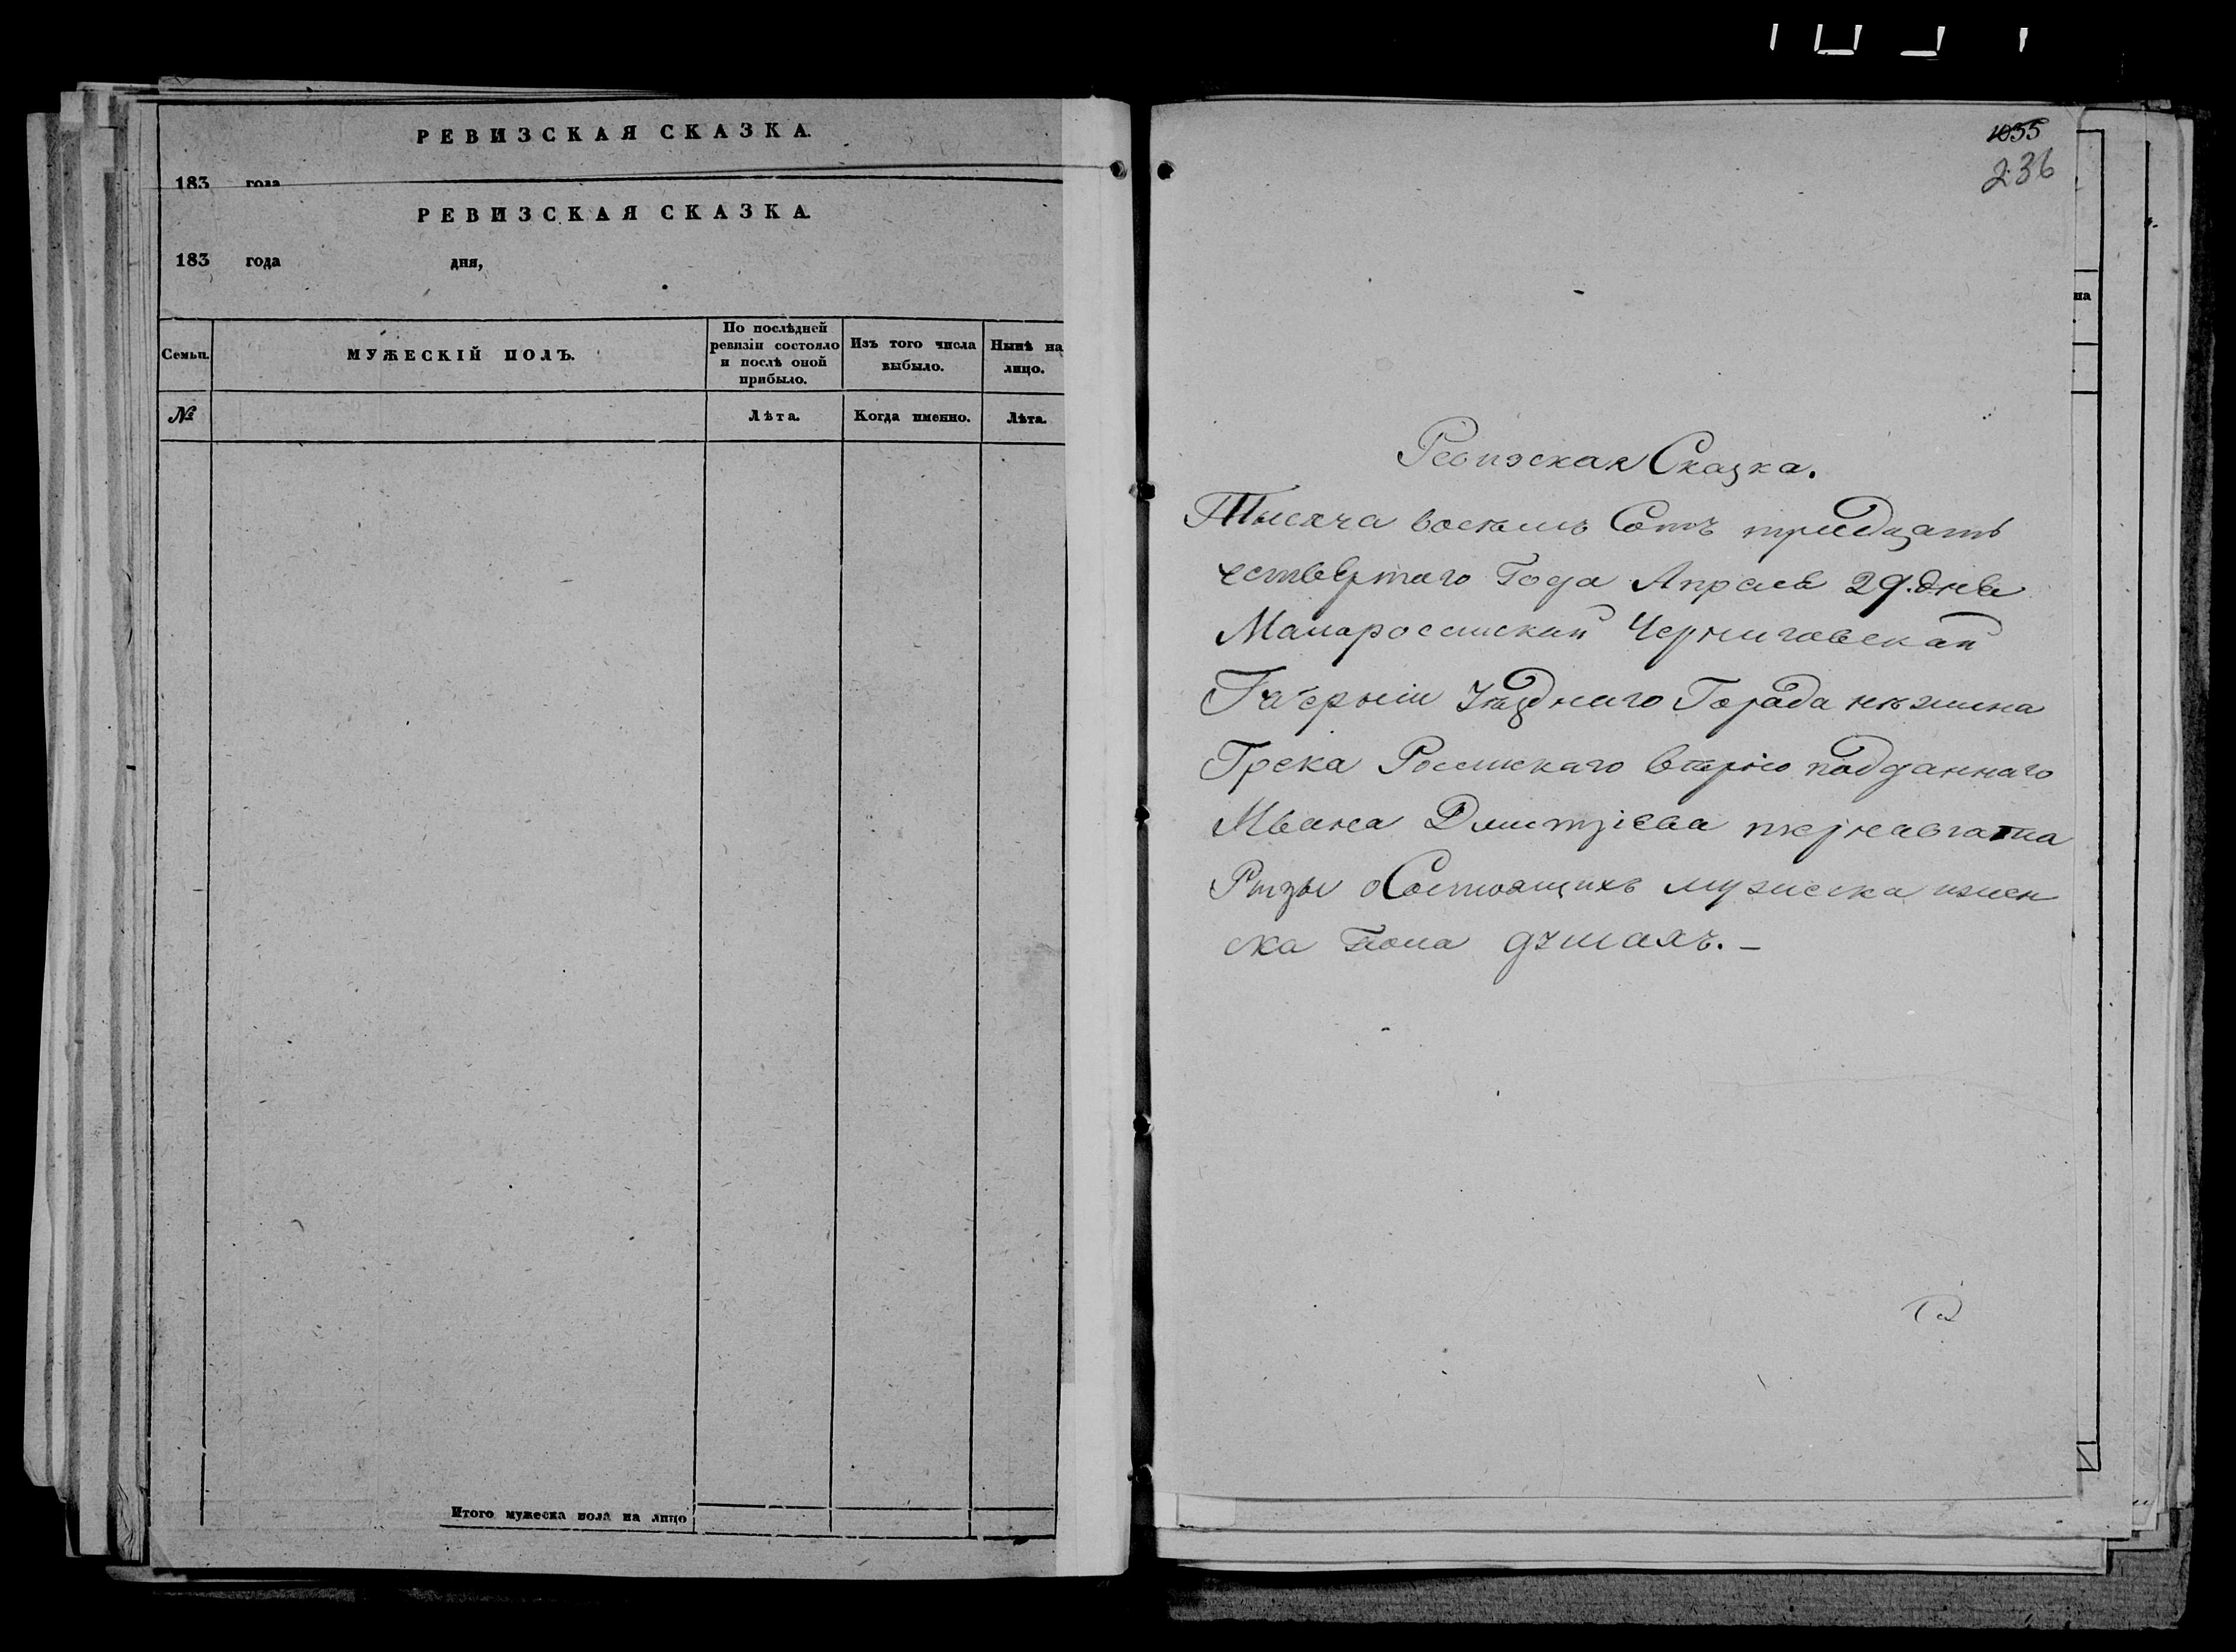 РЕВИЗСКАЯ СКАЗКА.
183 года
РЕВИЗСКАЯ СКАЗКА.
183 года дня,
Семьи.
МУЖЕСКІЙ ПОЛЪ.
По послѣдней
ревизіи состояло
и послѣ оной
прибыло.
Изъ того числа
выбыло.
Нынѣ на
лицо.
№
Лѣта.
Когда именно.
Лѣта.
Итого мужеска пола на лицо
1055
236
на
Ревизская Сказка.
Тысяча восемь Сотъ тридцать
четвертаго Года Апреля 29. дня
Малороссиской Черниговской
Губерніи Уѣзднаго Города нѣжина
Грека Россискаго подданнаго
Ивана Дмитріева
оСостоящихъ мужеска ижен
ска пола душахъ. –